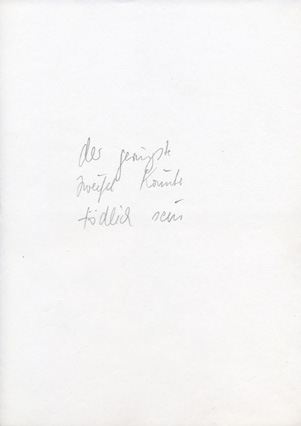 der geringste
zweifel könnte
tödlich sein